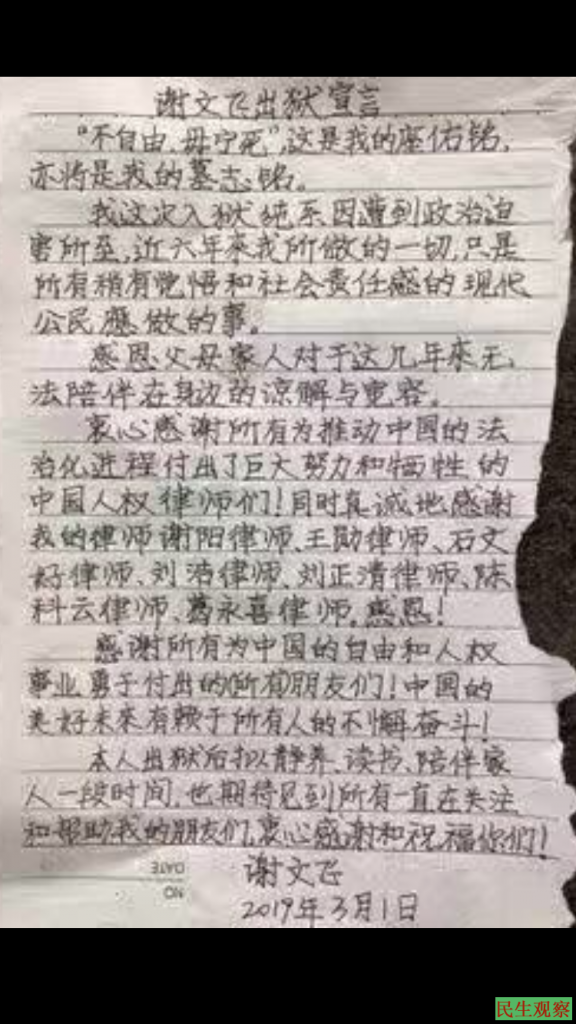 谢文飞出狱宣言
“不自由,毋宁死”,这是我的座佑铭,
亦将是我的墓志铭。
我这次入狱纯系因遭到政治迫
害所至,近六年来我所做的一切,只是
所有稍有觉悟和社会责任感的现代
公民应做的事。
感恩父母家人对于这几年来无
法陪伴在身边的谅解与宽容。
衷心感谢所有为推动中国的法
治化进程付出了巨大努力和牺牲的
中国人权律师们!同时真诚地感谢
我的律师谢阳律师、王勋律师、石文
好律师、刘浩律师、刘正清律师、陈
科云律师、葛永喜律师。感恩!
感谢所有为中国的自由和人权
事业勇于付出的(所有)朋友们!中国的
美好未来有赖于所有人的不懈奋斗!
本人出狱后拟静养、读书、陪伴家
人一段时间,也期待见到所有一直在关注
和帮助我的朋友们,衷心感谢和祝福你们!
谢文飞
DATE
NO
2019年3月1日
民生观察